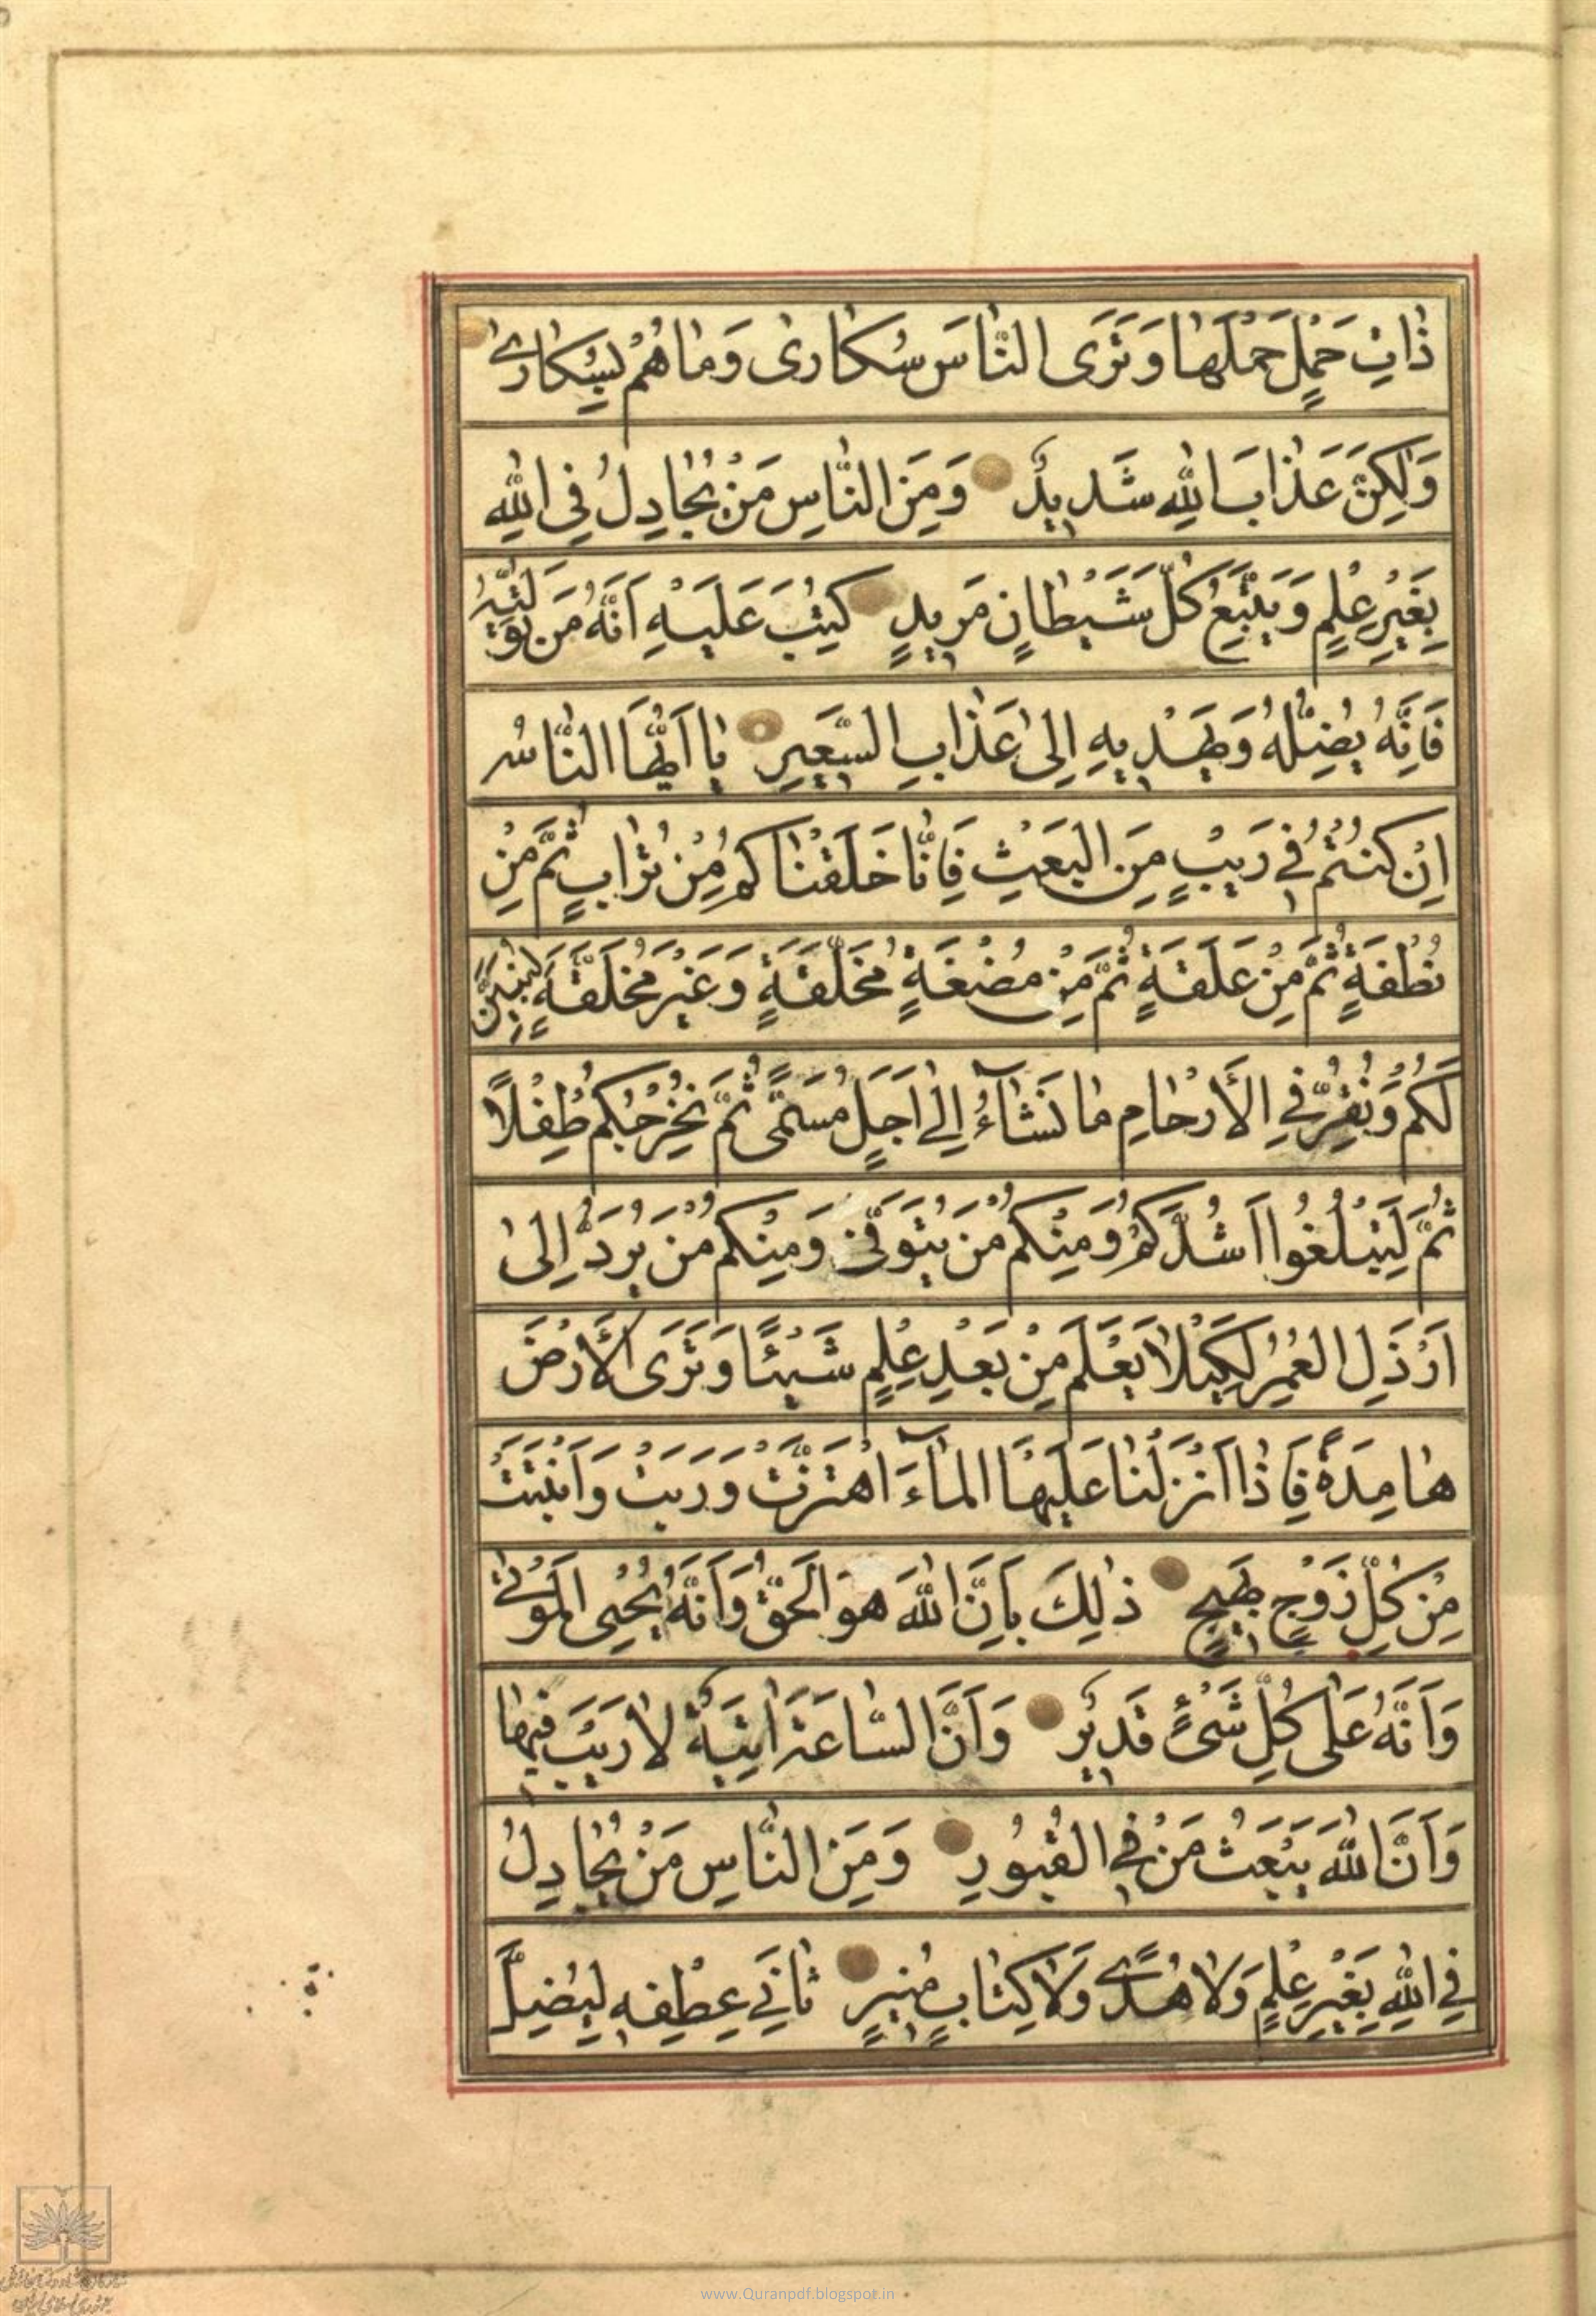 ذٰاتِ حَمْلٍ حَمْلَهٰا وَتَرَى النّٰاسَ سُكٰارىٰ وَمٰا هُمْ بِسُكٰارىٰ
وَلٰكِنَّ عَذٰابَ اللّٰهِ شَدِيدٌ وَمِنَ النّٰاسِ مَنْ يُجٰادِلُ فِي اللّٰهِ
بِغَيْرِ عِلْمٍ وَيَتَّبِعُ كُلَّ شَيْطٰانٍ مَرِيدٍ كُتِبَ عَلَيْهِ اَنَّهُ مَنْ تَوَلّٰيهُ
فَاِنَّهُ يُضِلُّهُ وَيَهْدِيهِ اِلىٰ عَذٰابِ السَّعِيرِ يٰا اَيُّهَا النّٰاسُ
اِنْ كُنْتُمْ فِي رَيْبٍ مِنَ الْبَعْثِ فَاِنّٰا خَلَقْنٰاكُمْ مِنْ تُرٰابٍ ثُمَّ مِنْ
نُطْفَةٍ ثُمَّ مِنْ عَلَقَةٍ ثُمَّ مِنْ مُضْغَةٍ مُخَلَّقَةٍ وَغَيْرِ مُخَلَّقَةٍ لِنُبَيِّنَ
لَكُمْ وَنُقِرُّ فِي الْاَرْحٰامِ مٰا نَشٰآءُ اِلىٰ اَجَلٍ مُسَمًّى ثُمَّ نُخْرِجُكُمْ طِفْلًا
ثُمَّ لِتَبْلُغُوا اَشُدَّكُمْ وَمِنْكُمْ مَنْ يُتَوَفّٰى وَمِنْكُمْ مَنْ يُرَدُّ اِلىٰ
اَرْذَلِ الْعُمُرِ لِكَيْلٰا يَعْلَمَ مِنْ بَعْدِ عِلْمٍ شَيْئًا وَتَرَى الْاَرْضَ
هٰامِدَةً فَاِذٰا اَنْزَلْنٰا عَلَيْهَا الْمٰآءَ اهْتَزَّتْ وَرَبَتْ وَاَنْبَتَتْ
مِنْ كُلِّ زَوْجٍ بَهِيجٍ ذٰلِكَ بِاَنَّ اللّٰهَ هُوَ الْحَقُّ وَاَنَّهُ يُحْيِي الْمَوْتىٰ
وَاَنَّهُ عَلىٰ كُلِّ شَيْءٍ قَدِيرٌ وَاَنَّ السّٰاعَةَ اٰتِيَةٌ لٰا رَيْبَ فِيهٰا
وَاَنَّ اللّٰهَ يَبْعَثُ مَنْ فِي الْقُبُورِ وَمِنَ النّٰاسِ مَنْ يُجٰادِلُ
فِي اللّٰهِ بِغَيْرِ عِلْمٍ وَلٰا هُدًى وَلٰا كِتٰابٍ مُنِيرٍ ثٰانِيَ عِطْفِهِ لِيُضِلَّ
www.Quranpdf.blogspot.in